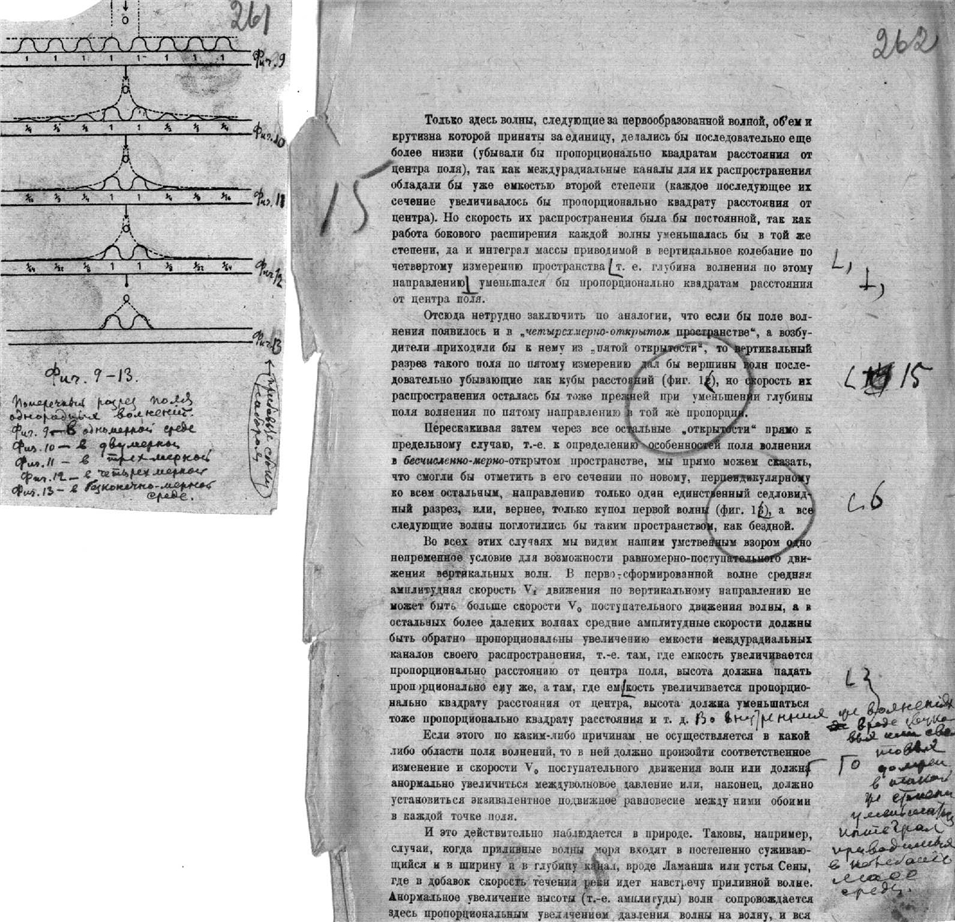 261
Фиг. 9
1 1 1 1 1 1 1 1
Фиг. 10
Фиг. 11
Фиг. 12
Фиг. 13
Фиг. 9-13.
Поперечный разрез поля
однорядных волнений
Фиг. 9 — в одномерной среде
Фиг. 10 — в двумерной
Фиг. 11 — в трехмерной
Фиг. 12 — в четырехмерной
Фиг. 13 — в бесконечно-мерной
среде.
262
15
Только здесь волны, следующие за первообразованной волной, об'ем и
крутизна которой приняты за единицу, делались бы последовательно еще
более низки (убывали бы пропорционально квадратам расстояния от
центра поля), так как междурадиальные каналы для их распространения
обладали бы уже емкостью второй степени (каждое последующее их
сечение увеличивалось бы пропорционально квадрату расстояния от
центра). Но скорость их распространения была бы постоянной, так как
работа бокового расширения каждой волны уменьшалась бы в той же
степени, да и интеграл массы приводимой в вертикальное колебание по
четвертому измерению пространства т. е. глубина волнения по этому
направлению уменьшался бы пропорционально квадратам расстояния
от центра поля.
Отсюда нетрудно заключить по аналогии, что если бы поле вол-
нения появилось и в „четырехмерно-открытом пространстве“, а возбу-
дители приходили бы к нему из „пятой открытости“, то вертикальный
разрез такого поля по пятому измерению дал бы вершины волн после-
довательно убывающие как кубы расстояний (фиг. 12), но скорость их
распространения осталась бы тоже прежней при уменьшении глубины
поля волнения по пятому направлению в той же пропорции.
15
Перескакивая затем через все остальные „открытости“ прямо к
предельному случаю, т.-е. к определению особенностей поля волнения
в бесчисленно-мерно-открытом пространстве, мы прямо можем сказать,
что смогли бы отметить в его сечении по новому, перпендикулярному
ко всем остальным, направлению только один единственный седловид-
ный разрез, или, вернее, только купол первой волны (фиг. 13), а все
следующие волны поглотились бы таким пространством, как бездной.
6
Во всех этих случаях мы видим нашим умственным взором одно
непременное условие для возможности равномерно-поступательного дви-
жения вертикальных волн. В перво-сформированной волне средняя
амплитудная скорость V₁ движения по вертикальному направлению не
может быть больше скорости V₀ поступательного движения волны, а в
остальных более далеких волнах средние амплитудные скорости должны
быть обратно пропорциональны увеличению емкости междурадиальных
каналов своего распространения, т.-е. там, где емкость увеличивается
пропорционально расстоянию от центра поля, высота должна падать
пропорционально ему же, а там, где емкость увеличивается пропорцио-
нально квадрату расстояния от центра, высота должна уменьшаться
тоже пропорционально квадрату расстояния и т. д. Во внутренних
же волнениях
вроде
в такой
же степени
уменьшаться
интеграл
приводимой
в колебание
массы
среды.
Если этого по каким-либо причинам не осуществляется в какой
либо области поля волнений, то в ней должно произойти соответственное
изменение и скорости V₀ поступательного движения волн или должно
анормально увеличиться междуволновое давление или, наконец, должно
установиться эквивалентное подвижное равновесие между ними обоими
в каждой точке поля.
И это действительно наблюдается в природе. Таковы, например,
случаи, когда приливные волны моря входят в постепенно суживаю-
щийся и в ширину и в глубину канал, вроде Ламанша или устья Сены,
где в добавок скорость течения реки идет навстречу приливной волне.
Анормальное увеличение высоты (т.-е. амплитуды) волн сопровождается
здесь пропорциональным увеличением давления волны на волну, и вся